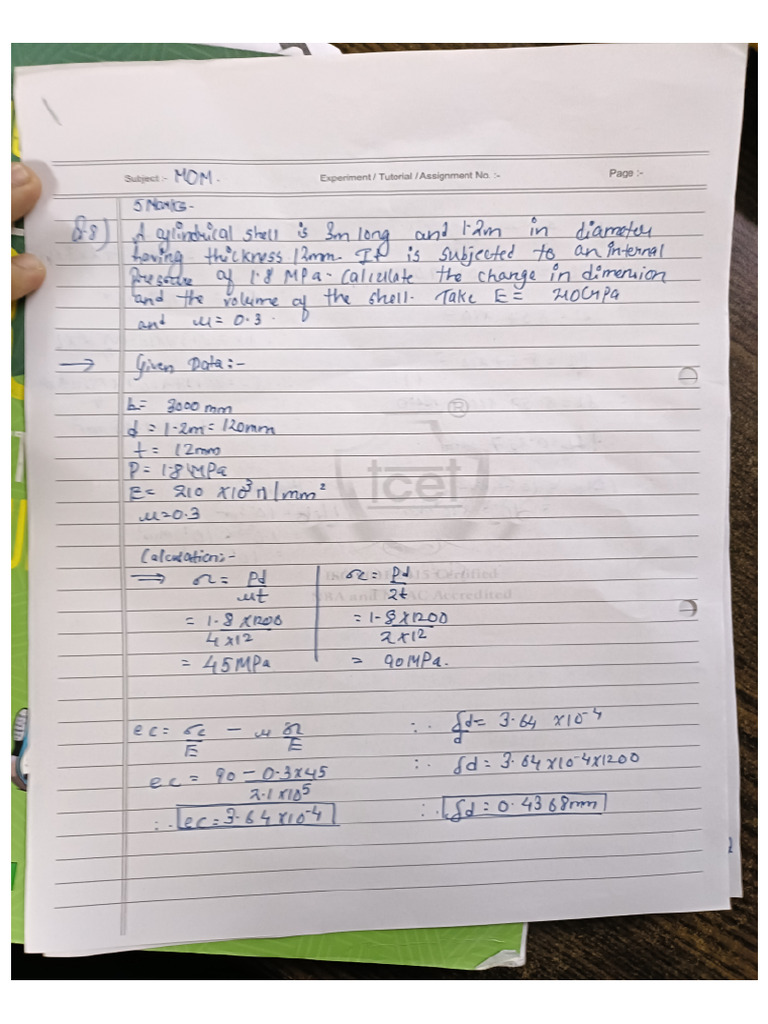 Subject :- MOM. Experiment / Tutorial / Assignment No. :- Page :-
5 Marks.
Q8) A cylindrical shell is 3m long and 1.2m in diameter
having thickness 12mm. It is subjected to an internal
pressure of 1.8 MPa. Calculate the change in dimension
and the volume of the shell. Take E = 210GPa
and μ = 0.3.
→ Given Data:-
L= 3000 mm
d = 1.2m = 120mm
t = 12mm
P = 1.8 MPa
E = 210 x10³ N/mm²
μ=0.3
tcet
Calculation:-
→ σL = Pd / 4t | σc = Pd / 2t
= 1.8 x1200 / 4 x12 | = 1.8 x1200 / 2 x12
= 45MPa | = 90MPa.
Accredited
ec = σc/E - μ σL/E ∴ δd/d = 3.64 x10⁻⁴
ec = 90 - 0.3x45 / 2.1x10⁵ ∴ δd = 3.64x10⁻⁴x1200
∴ ec = 3.64x10⁻⁴ ∴ δd = 0.4368mm